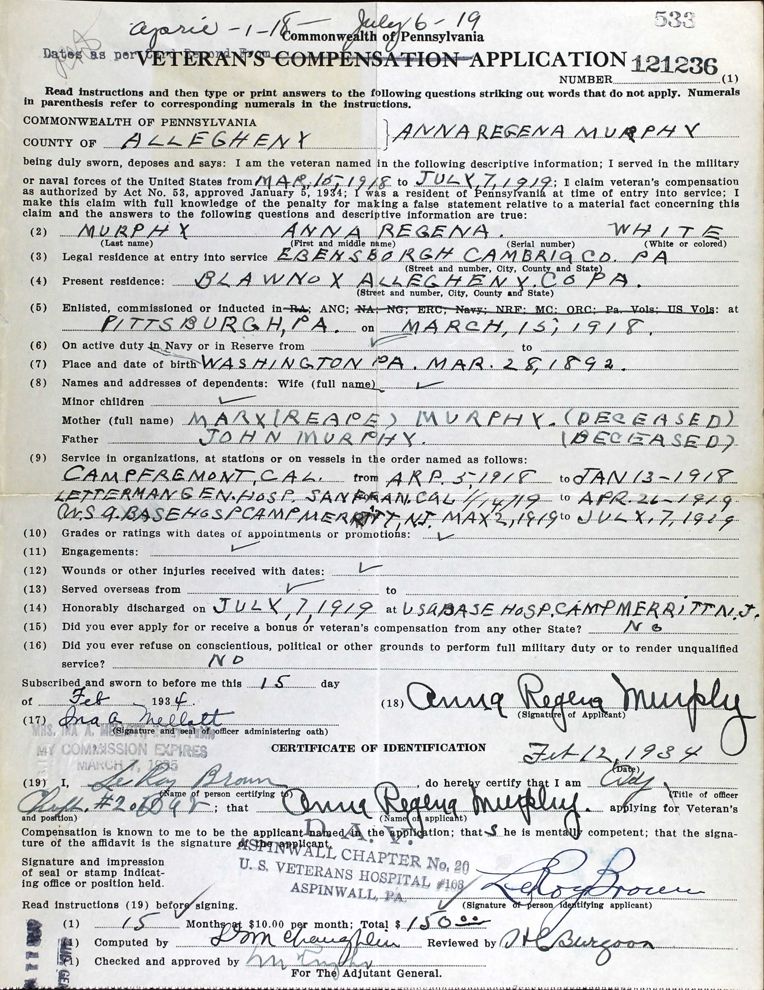 April - 1 - 18 - July 6 - 19
533
Commonwealth of Pennsylvania
Dates as per
VETERAN'S COMPENSATION APPLICATION
121236
NUMBER (1)
Read instructions and then type or print answers to the following questions striking out words that do not apply. Numerals
in parenthesis refer to corresponding numerals in the instructions.
COMMONWEALTH OF PENNSYLVANIA
COUNTY OF ALLEGHENY } ANNA REGENA MURPHY
being duly sworn, deposes and says: I am the veteran named in the following descriptive information; I served in the military
or naval forces of the United States from MAR, 15, 1918 to JULY, 7, 1919; I claim veteran's compensation
as authorized by Act No. 53, approved January 5, 1934; I was a resident of Pennsylvania at time of entry into service; I
make this claim with full knowledge of the penalty for making a false statement relative to a material fact concerning this
claim and the answers to the following questions and descriptive information are true:
(2) MURPHY ANNA REGENA. WHITE
(Last name) (First and middle name) (Serial number) (White or colored)
(3) Legal residence at entry into service EBENSBORGH CAMBRIA CO. PA
(Street and number, City, County and State)
(4) Present residence: BLAWNOX ALLEGHENY. CO PA.
(Street and number, City, County and State)
(5) Enlisted, commissioned or inducted in RA; ANC; NA; NG; ERC; Navy; NRF; MC; ORC; Pa. Vols; US Vols: at
PITTSBURGH, PA. on MARCH, 15, 1918.
(6) On active duty in Navy or in Reserve from to
(7) Place and date of birth WASHINGTON PA. MAR. 28, 1892.
(8) Names and addresses of dependents: Wife (full name)
Minor children
Mother (full name) MARY (REAPE) MURPHY. (DECEASED)
Father JOHN MURPHY. (DECEASED)
(9) Service in organizations, at stations or on vessels in the order named as follows:
CAMPFREMONT, CAL. from ARP. 5, 1918 to JAN 13-1918
LETTERMAN GEN. HOSP. SAN FRAN. CAL 1/14/19 to APR. 26-1919
U.S.A. BASE HOSP CAMP MERRITT, NJ. MAY 2, 1919 to JULY. 7, 1919
(10) Grades or ratings with dates of appointments or promotions:
(11) Engagements:
(12) Wounds or other injuries received with dates:
(13) Served overseas from to
(14) Honorably discharged on JULY, 7, 1919 at USA BASE HOSP. CAMP MERRITT N.J.
(15) Did you ever apply for or receive a bonus or veteran's compensation from any other State? NO
(16) Did you ever refuse on conscientious, political or other grounds to perform full military duty or to render unqualified
service? NO
Subscribed and sworn to before me this 15 day
of Feb 1934.
(18) Anna Regena Murphy
(Signature of Applicant)
(17) Ina A Mellott
(Signature and seal of officer administering oath)
MRS. INA A. MELLOTT
MY COMMISSION EXPIRES
MARCH 7, 1935
CERTIFICATE OF IDENTIFICATION
Feb 12, 1934
(Date)
(19) I, LeRoy Brown, do hereby certify that I am Adj
(Name of person certifying to) (Title of officer
; that Anna Regena Murphy. applying for Veteran's
and position) (Name of applicant)
Compensation is known to me to be the applicant named in the application; that s he is mentally competent; that the signa-
ture of the affidavit is the signature of the applicant.
D. A. V.
ASPINWALL CHAPTER No. 20
U. S. VETERANS HOSPITAL #103
ASPINWALL, PA.
Signature and impression
of seal or stamp indicat-
ing office or position held.
LeRoy Brown
(Signature of person identifying applicant)
Read instructions (19) before signing.
(1) 15 Months at $10.00 per month; Total $ 150.00
(1) Computed by Reviewed by
(1) Checked and approved by
For The Adjutant General.